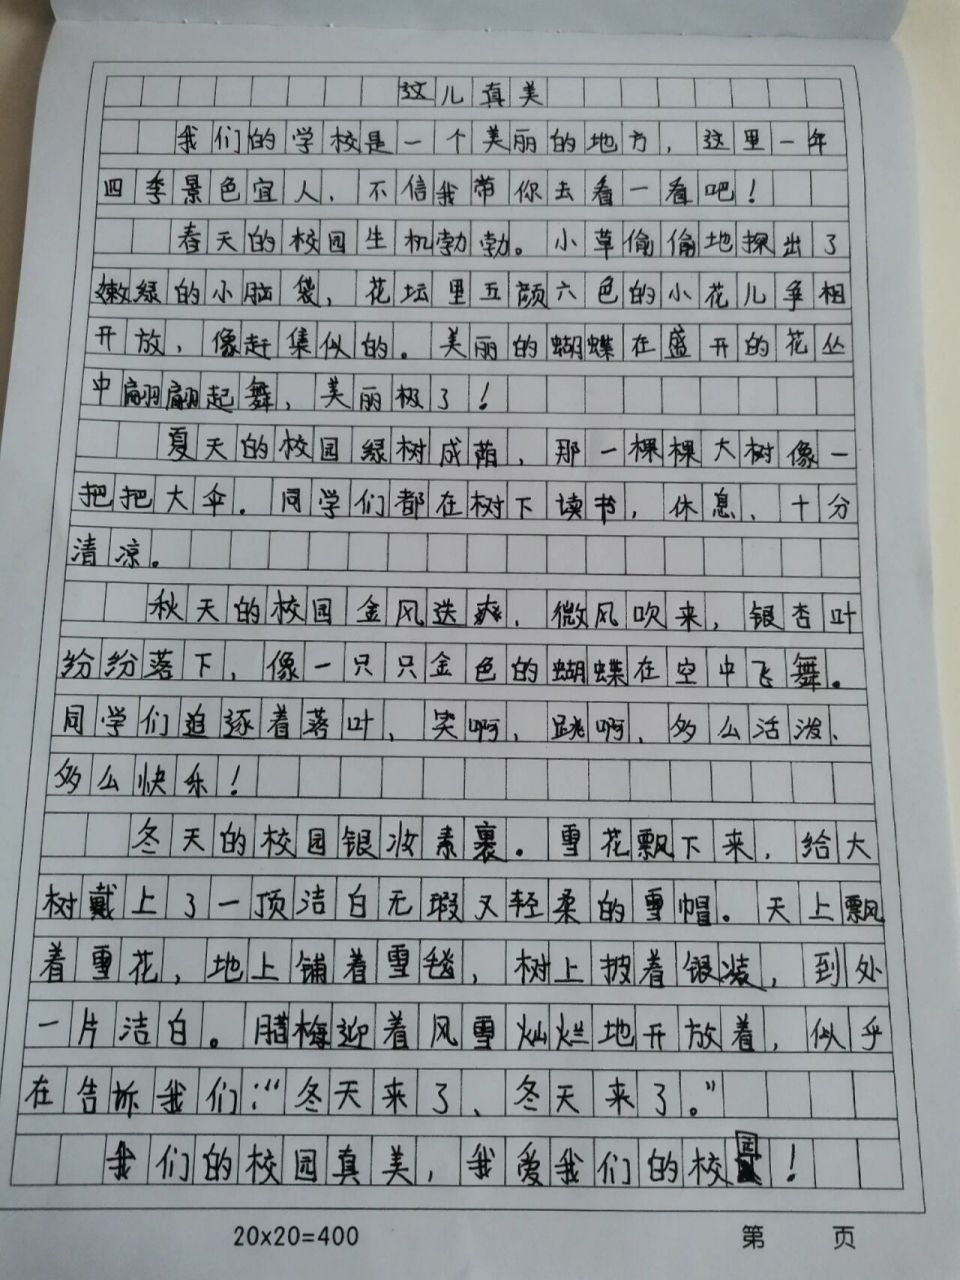 这儿真美
我们的学校是一个美丽的地方，这里一年
四季景色宜人，不信我带你去看一看吧！
春天的校园生机勃勃。小草偷偷地探出了
嫩绿的小脑袋，花坛里五颜六色的小花儿争相
开放，像赶集似的。美丽的蝴蝶在盛开的花丛
中翩翩起舞，美丽极了！
夏天的校园绿树成荫，那一棵棵大树像一
把把大伞。同学们都在树下读书，休息、十分
清凉。
秋天的校园金风迭爽，微风吹来，银杏叶
纷纷落下，像一只只金色的蝴蝶在空中飞舞。
同学们追逐着落叶、笑啊、跳啊、多么活泼、
多么快乐！
冬天的校园银妆素裹。雪花飘下来，给大
树戴上了一顶洁白无瑕又轻柔的雪帽。天上飘
着雪花，地上铺着雪毯，树上披着银装，到处
一片洁白。腊梅迎着风雪灿烂地开放着，似乎
在告诉我们：“冬天来了、冬天来了。”
我们的校园真美，我爱我们的校园！
20×20=400
第 页